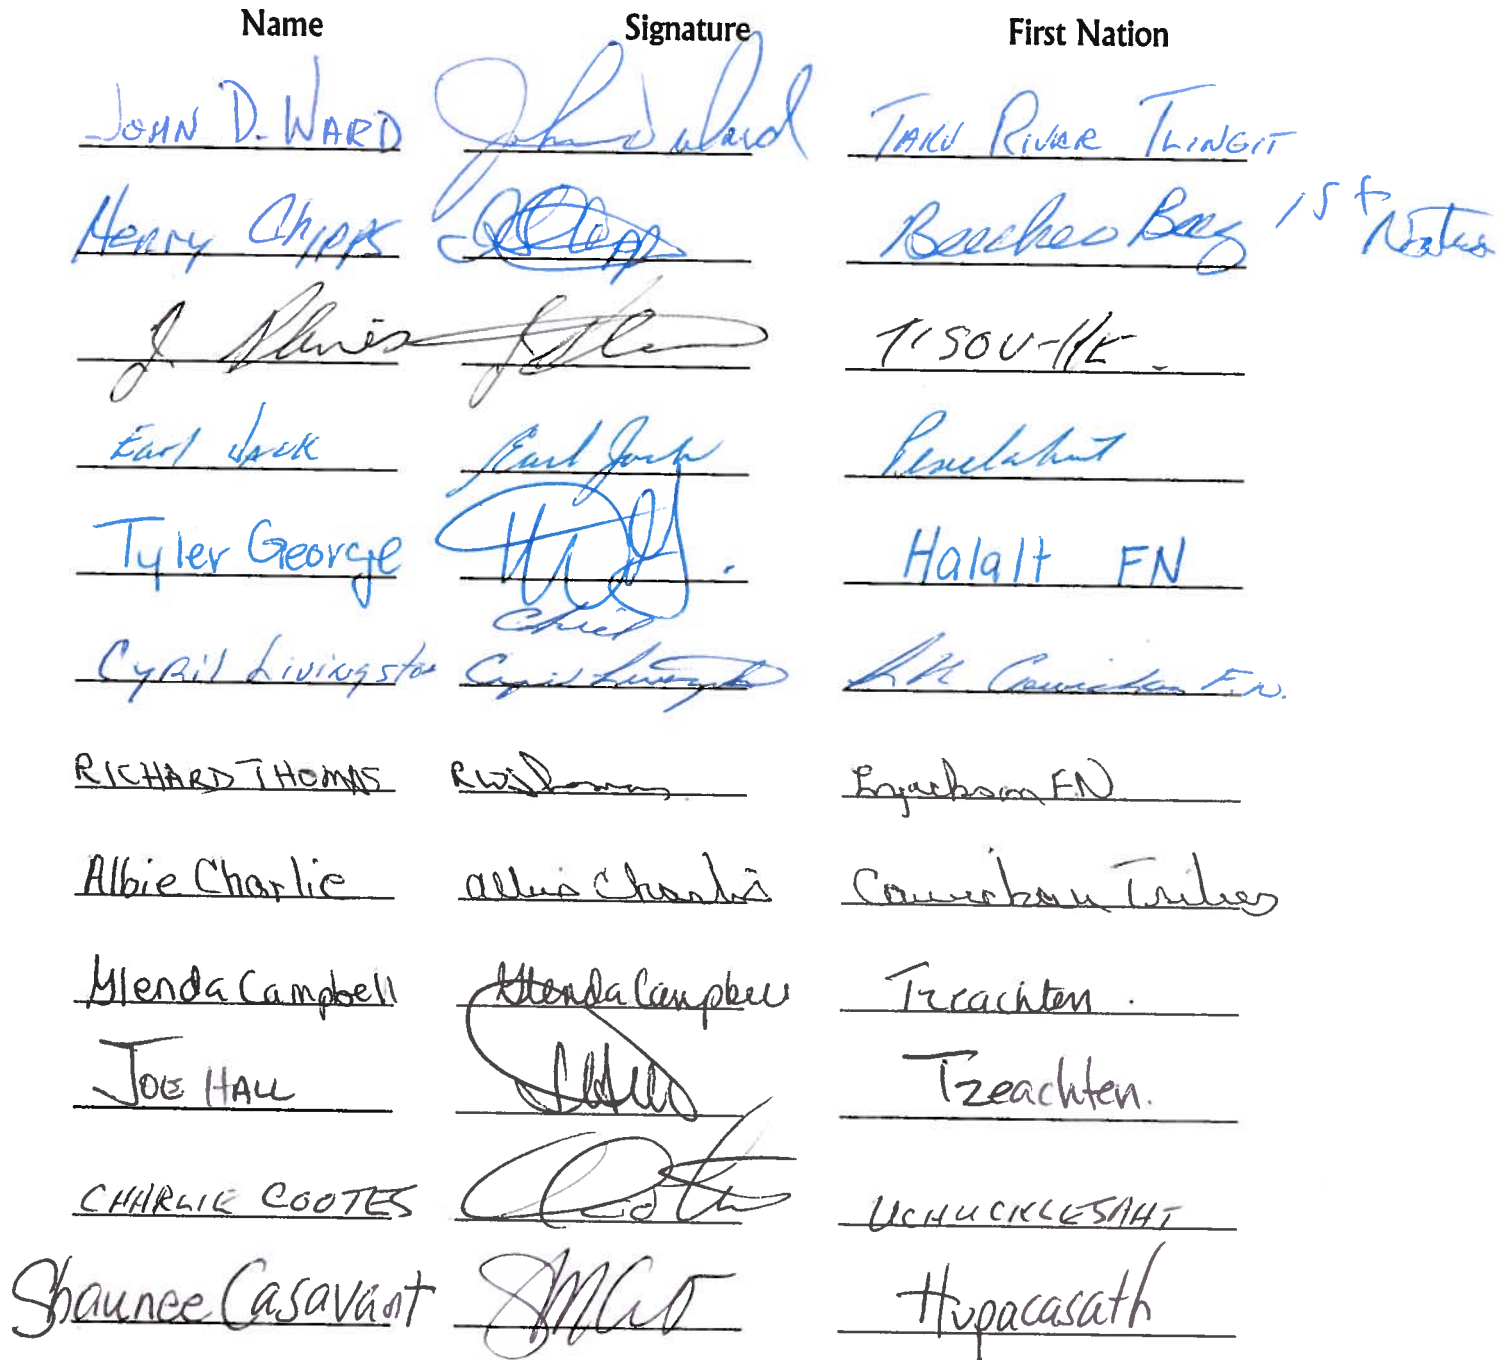 Name Signature First Nation
JOHN D. WARD John D Ward TAKU RIVER TLINGIT
Henry Chipps Beecher Bay 1st Nation
J. Planes T'SOU-KE.
Earl Jack Earl Jack Penelakut
Tyler George Halalt FN
Chief
Cyril Livingston Cyril Livingston Lk Cowichan F.N.
RICHARD THOMAS RWThomas Lyackson FN
Albie Charlie Albie Charlie Cowichan Tribes
Glenda Campbell Glenda Campbell Tzeachten.
JOE HALL Tzeachten.
CHARLIE COOTES UCHUCKLESAHT
Shaunee Casavant Hupacasath